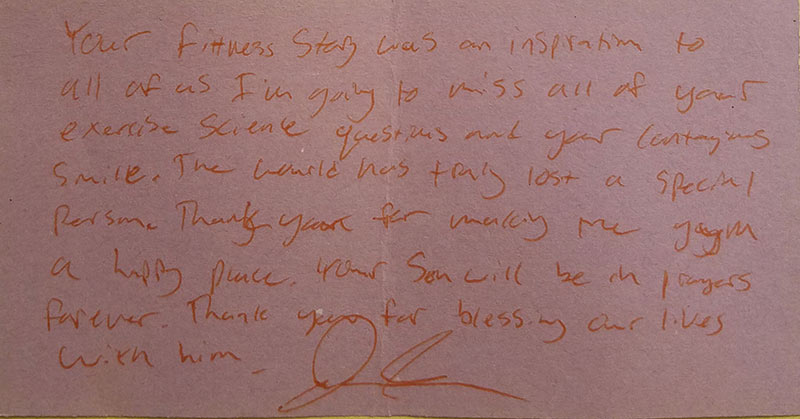 Your fittness Story was an inspiration to
all of us I'm going to miss all of your
exercise Science questions and your Contagious
Smile. The world has truly lost a special
Person. Thank you for making the gym
a happy place. Your Son will be in prayers
forever. Thank you for blessing our lives
with him.